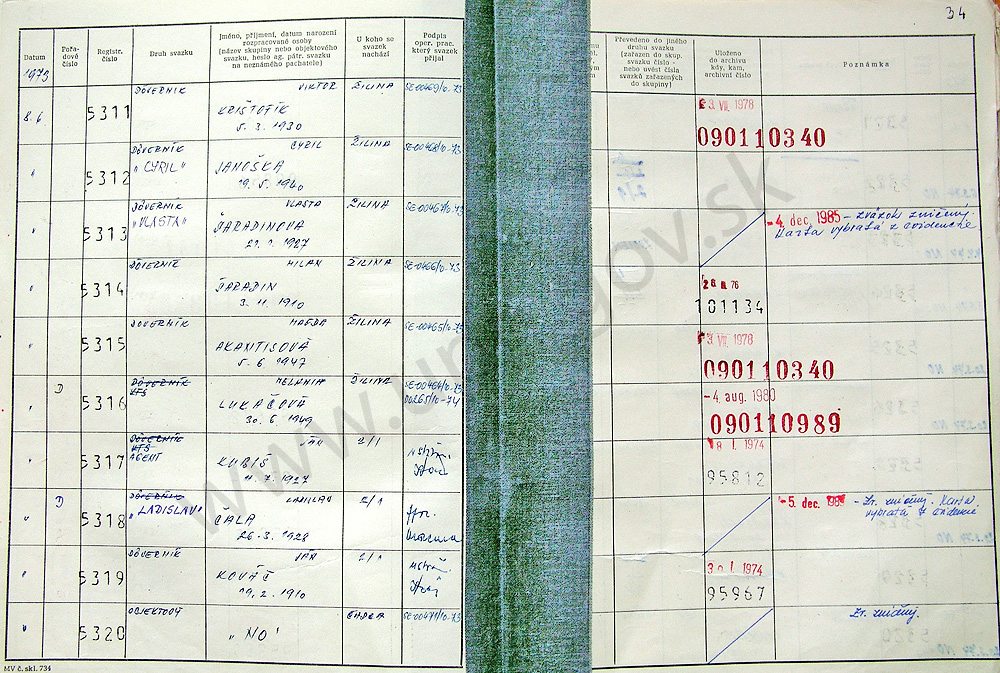 34
Datum
Pořadové číslo
Registr. číslo
Druh svazku
Jméno, příjmení, datum narození
rozpracované osoby
(název skupiny nebo objektového
svazku, heslo ag. pátr. svazku
na neznámého pachatele)
U koho se svazek nachází
Podpis oper. prac. který svazek přijal
Převedeno do jiného
druhu svazku
(zařazen do skup.
svazku číslo -
nebo uvést čísla
svazků zařazených
do skupiny)
Uloženo
do archivu
kdy, kam,
archivní číslo
Poznámka
1973
8.6 5311 DÔVERNÍK VIKTOR ŽILINA SE-00469/10-73
KRIŠTOFÍK
5. 3. 1930
3. VII. 1978
090110340
" 5312 DÔVERNÍK CYRIL ŽILINA SE-00468/10-73
"CYRIL" JANOŠKA
19. 5. 1940
" 5313 DÔVERNÍK VLASTA ŽILINA SE-00467/10-73
"VLASTA" ŠARADINOVA
1927
-4. dec. 1985 - zväzok zničený.
Karta vybratá z evidencie
" 5314 DÔVERNÍK MILAN ŽILINA SE-00466/10-73
ŠARADIN
3. 11. 1910
76
101134
" 5315 DÔVERNÍK MAGDA ŽILINA SE-00465/10-73
AKANTISOVÁ
5. 6 1947
3. VII. 1978
090110340
" D 5316 DÔVERNÍK MELANIA ŽILINA SE-00464/10-73
KTS LUKÁČOVÁ 00265/10-74
30. 6. 1949
-4. aug. 1980
090110989
" 5317 DÔVERNÍK JÁN 2/1
KTS
AGENT KUBIŠ
7. 1927
8 I. 1974
95812
" D 5318 DÔVERNÍK LADISLAV 2/1
"LADISLAV" ČALA
26. 3. 1928
-5. dec. - Zv. zničený. Karta
vybratá z evidencie
" 5319 DÔVERNÍK JÁN 2/1
KOVÁČ
19. 2. 1910
30 I. 1974
95967
" 5320 OBJEKTOVÝ ČADCA SE-00471/10-73
"NO"
Zv. zničený.
MV č. skl. 734
www.upn.gov.sk